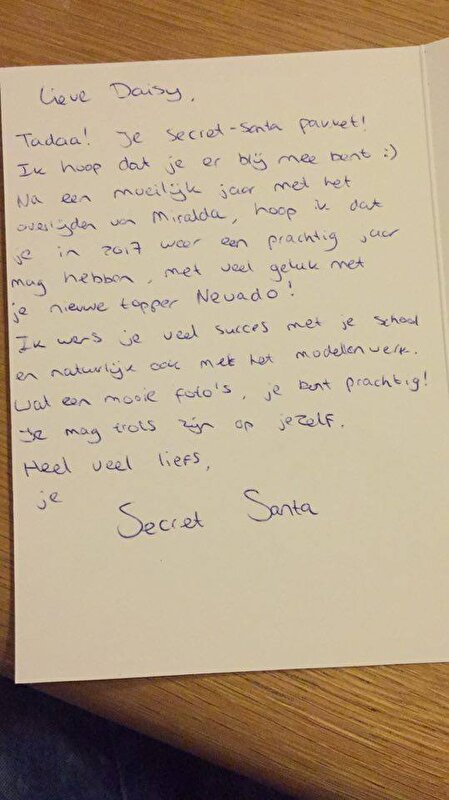 Lieve Daisy,
Tadaa! Je secret-santa pakket!
Ik hoop dat je er blij mee bent :)
Na een moeilijk jaar met het
overlijden van Miralda, hoop ik dat
je in 2017 weer een prachtig jaar
mag hebben, met veel geluk met
je nieuwe topper Nevado!
Ik wens je veel succes met je school
en natuurlijk ook met het modellenwerk.
Wat een mooie foto's, je bent prachtig!
Je mag trots zijn op jezelf.
Heel veel liefs,
je
Secret Santa